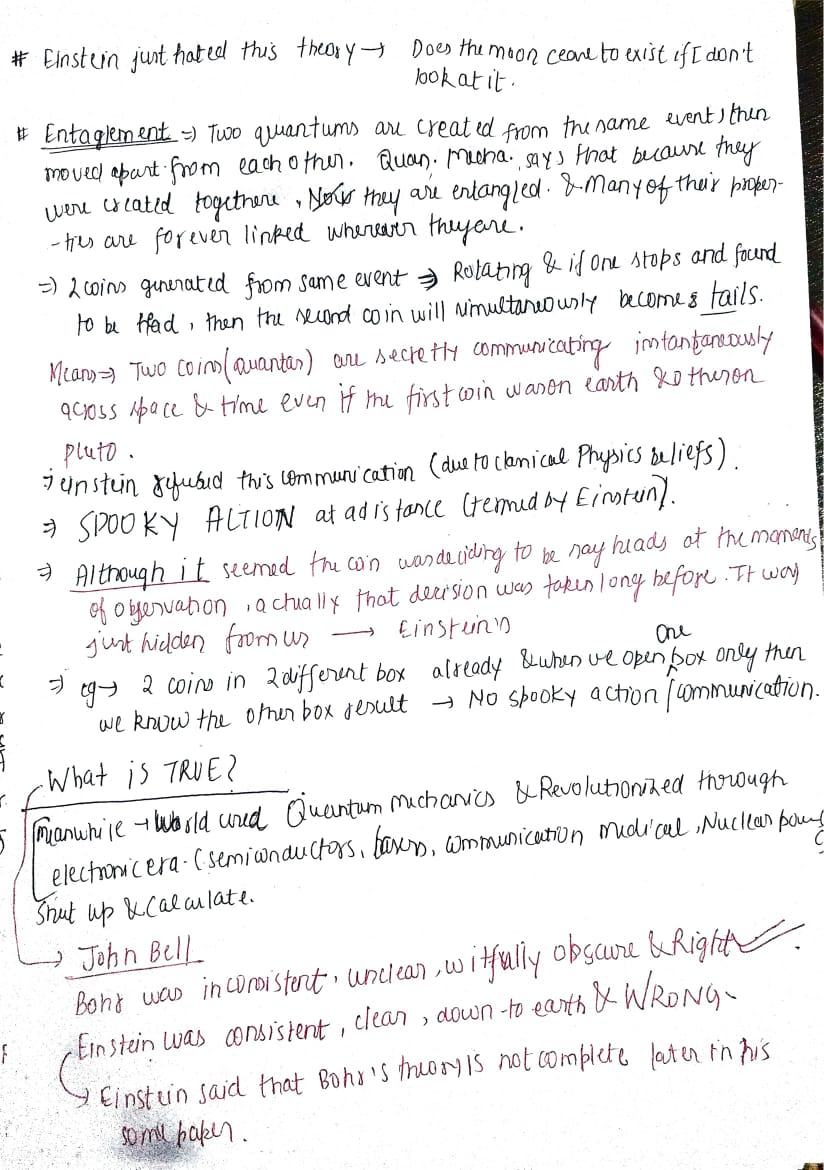 # Einstein just hated this theory → Does the moon ceane to exist if I don't
look at it.
# Entaglement ⇒ Two quantums are created from the same event, then
moved apart from each other. Quan. Mecha. says that because they
were created togethere, Now they are entangled. & Many of their proper-
-ties are forever linked wherever they are.
⇒ 2 coins generated from same event ⇒ Rotating & if one stops and found
to be Head, then the second coin will simultaneously becomes tails.
Means ⇒ Two coins (quantas) are secretly communicating instantaneously
across space & time even if the first coin was on earth & other on
pluto.
⇒ Einstein refused this communication (due to classical Physics beliefs).
⇒ SPOOKY ACTION at a distance (termed by Einstein).
⇒ Although it seemed the coin was deciding to be say heads at the moments
of observation, actually that decision was taken long before. It was
just hidden from us → Einstein's
One
⇒ eg → 2 coins in 2 different box already & when we open box only then
we know the other box result → No spooky action / communication.
What is TRUE?
Meanwhile → World used Quantum mechanics & Revolutionized through
electronic era. (semiconductors, lasers, communication medical, Nuclear
Shut up & Calculate.
→ John Bell
Bohr was inconsistent, unclear, witfully obscure & Right
Einstein was consistent, clear, down-to earth & WRONG
→ Einstein said that Bohr's theory is not complete later in his
some paper.